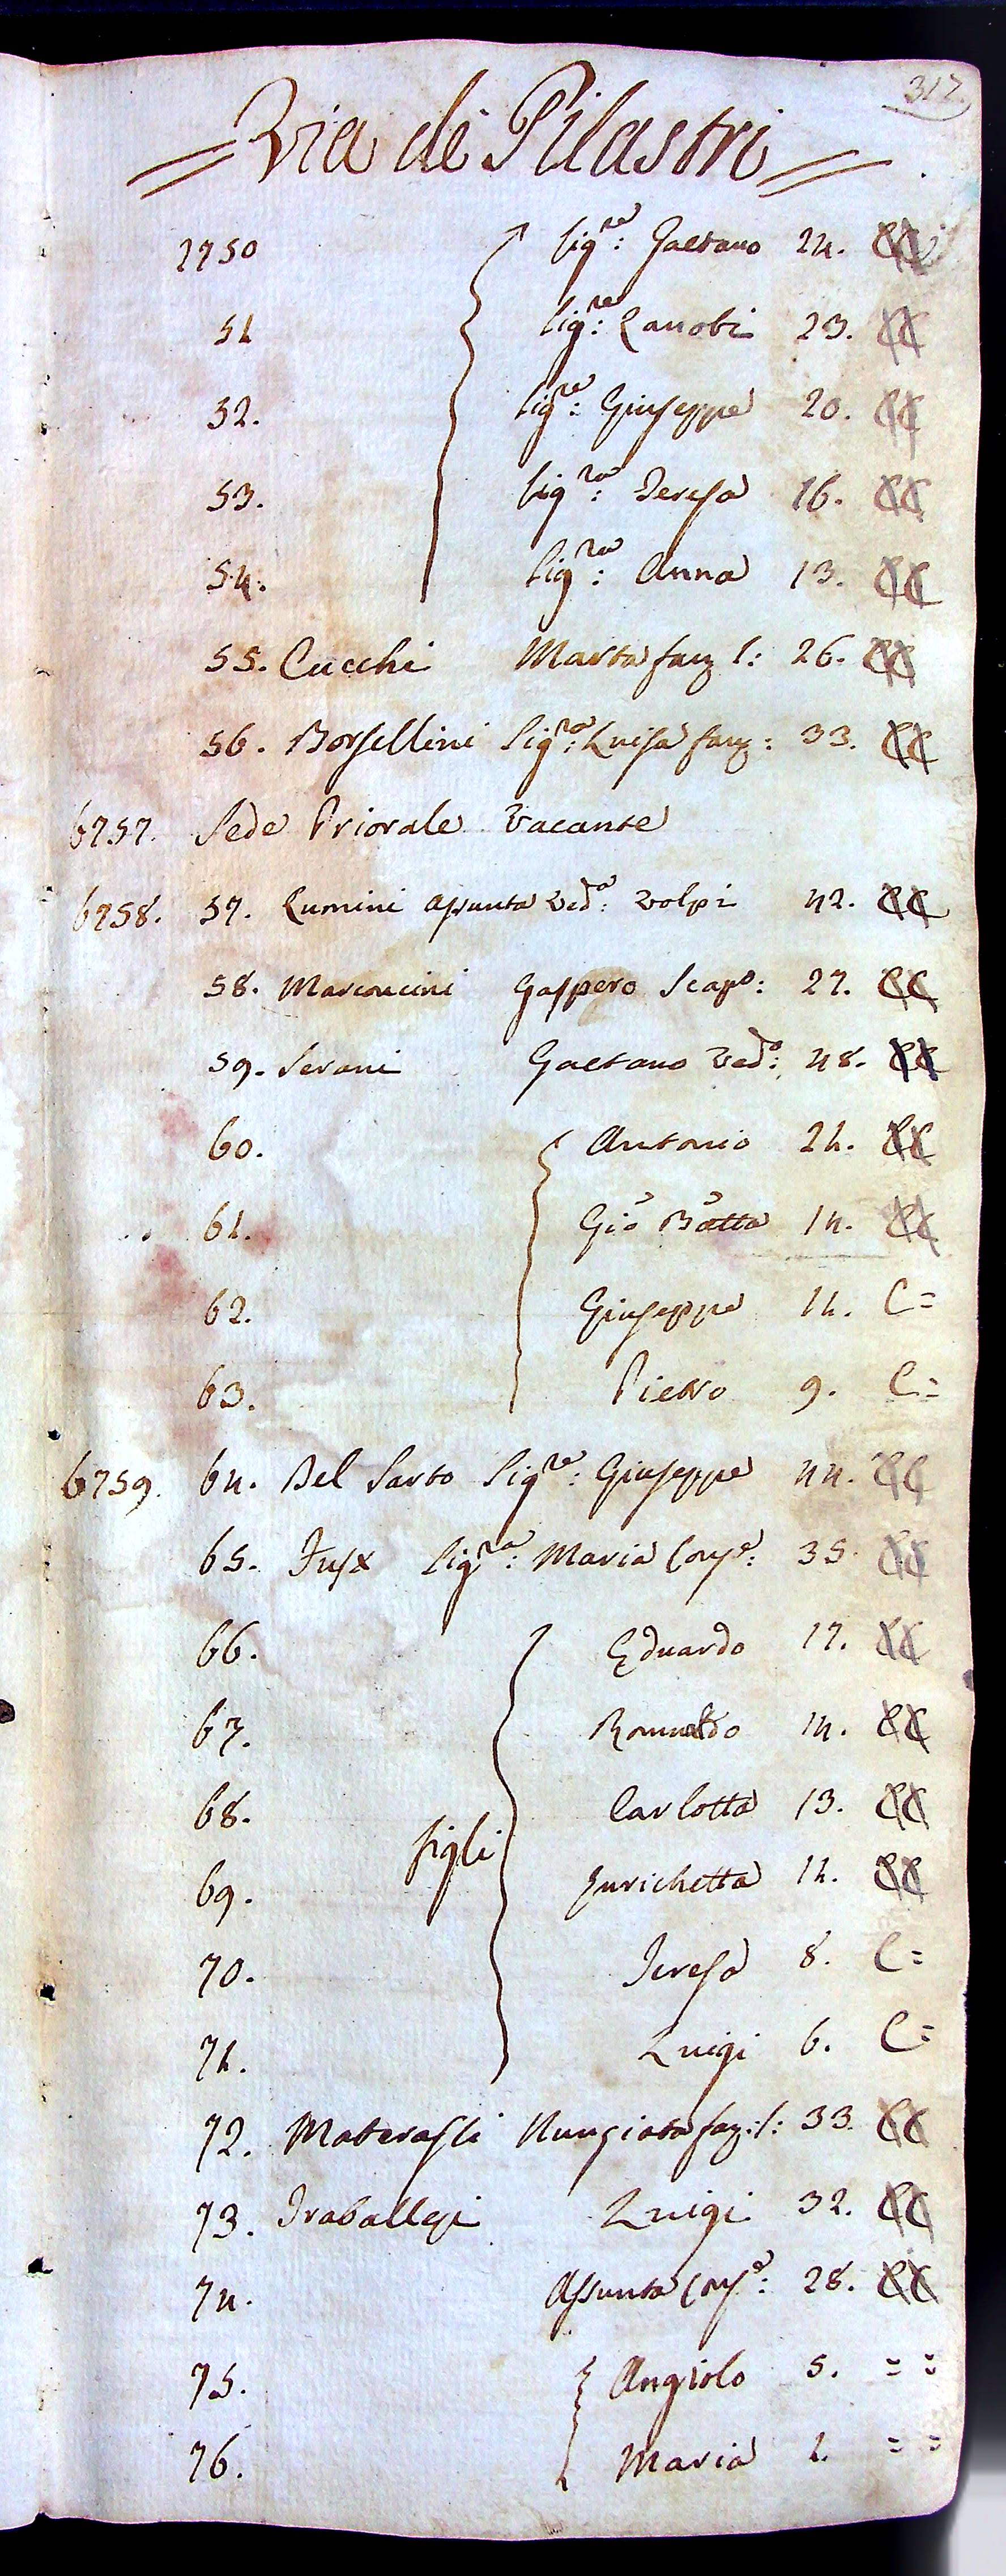 317.
= Via de Pilastri =
2750 Sig.re: Gaetano 24. CC
51 Sig.re: Zanobi 23. CC
52. Sig.re: Giuseppe 20. CC
53. Sig.ra: Teresa 16. CC
54. Sig.ra: Anna 13. CC
55. Cucchi Marta fanz l: 26. CC
56. Borsellini Sig.ra: Luisa fanz: 33. CC
6757. Sede Priorale Vacante
6758. 57. Lumini Assunta Ved.a: Volpi 42. CC
58. Marconcini Gaspero Scap.o: 27. CC
59. Serani Gaetano Ved.o: 48. CC
60. Antonio 21. CC
61. Gio Batta 14. CC
62. Giuseppe 11. C =
63. Pietro 9. C =
6759. 64. Del Sarto Sig.re: Giuseppe 44. CC
65. Sig.ra: Maria Cons.e: 35. CC
66. Eduardo 17. CC
67. Romualdo 14. CC
68. Carlotta 13. CC
figli
69. Enrichetta 11. CC
70. Teresa 8. C =
71. Luigi 6. C =
72. Materassi Nunziata fan: l: 33. CC
73. Traballesi Luigi 32. CC
74. Assunta Cons.e: 28. CC
75. Angiolo 5. = =
76. Maria 1. = =